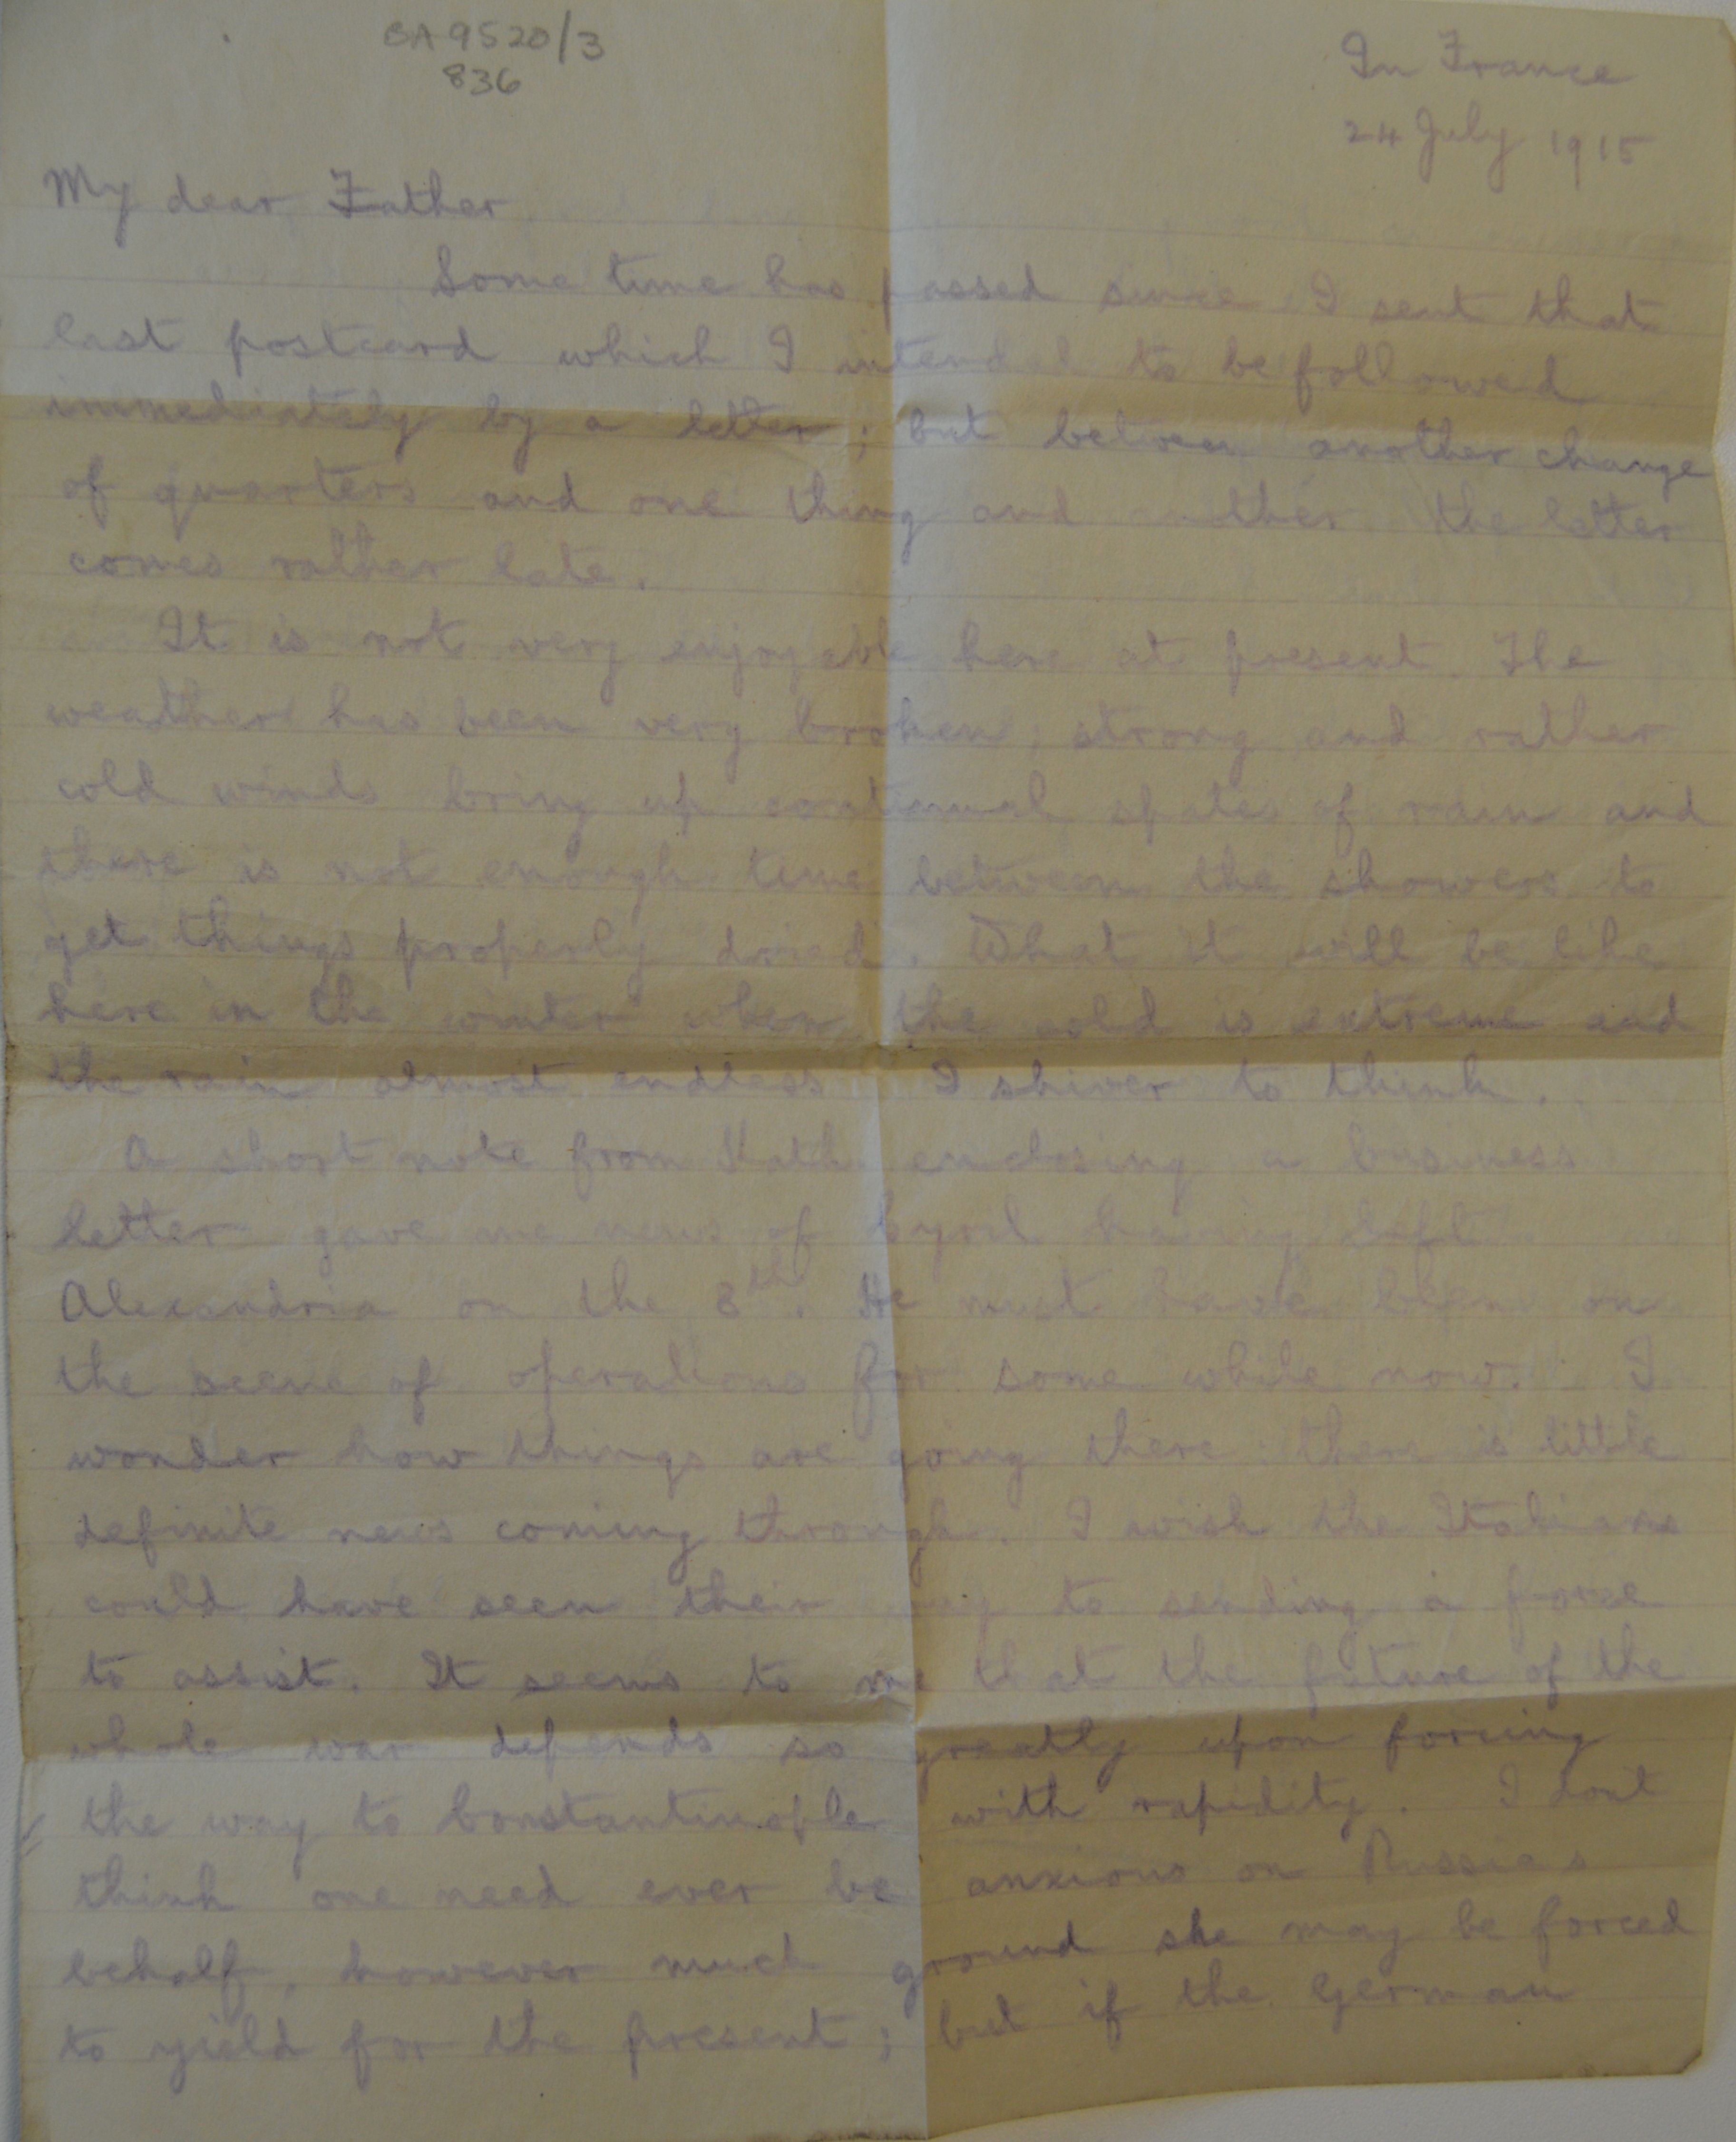 BA 9520/3
836
In France
24 July 1915
My dear Father
Some time has passed since I sent that
last postcard which I intended to be followed
immediately by a letter; but between another change
of quarters and one thing and another the letter
comes rather late.
It is not very enjoyable here at present. The
weather has been very broken; strong and rather
cold winds bring up continual spates of rain and
there is not enough time between the showers to
get things properly dried. What it will be like
here in the winter when the cold is extreme and
the rain almost endless I shiver to think.
A short note from Kath enclosing a business
letter gave me news of Cyril having left
Alexandria on the 8th. He must have been on
the scene of operations for some while now. I
wonder how things are going there: there is little
definite news coming through. I wish the Italians
could have seen their way to sending a force
to assist. It seems to me that the future of the
whole war depends so greatly upon forcing
the way to Constantinople with rapidity. I dont
think one need ever be anxious on Russias
behalf, however much ground she may be forced
to yield for the present; but if the German